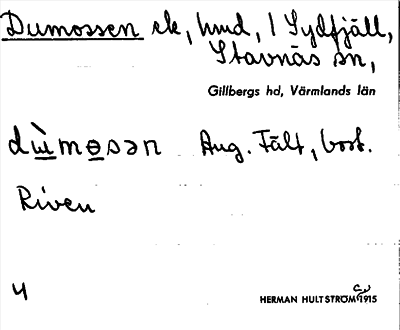 Dumossen ek, hmd, / Sydfjäll,
Stavnäs sn,
Gillbergs hd, Värmlands län
dùmosən Aug. Fält, bost.
Riven
4
HERMAN HULTSTRÖM 1915